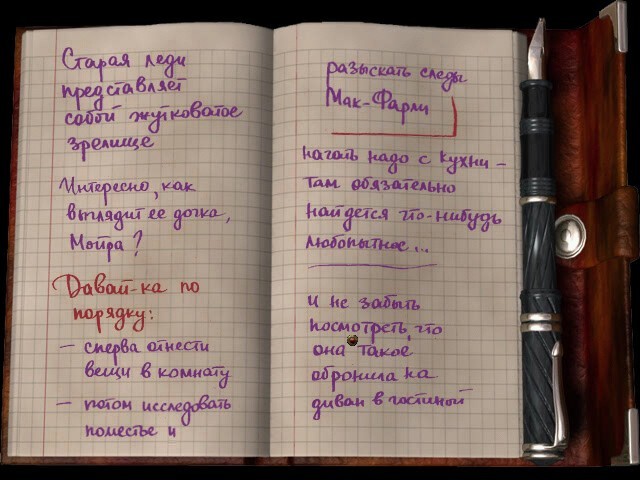 Старая леди
представляет
собой жутковатое
зрелище
Интересно, как
выглядит ее дочка,
Мойра?
Давай-ка по
порядку:
– сперва отнести
вещи в комнату
– потом исследовать
поместье и
разыскать следы
Мак-Фарли
начать надо с кухни –
там обязательно
найдется что-нибудь
любопытное...
и не забыть
посмотреть, что
она такое
обронила на
диван в гостиной